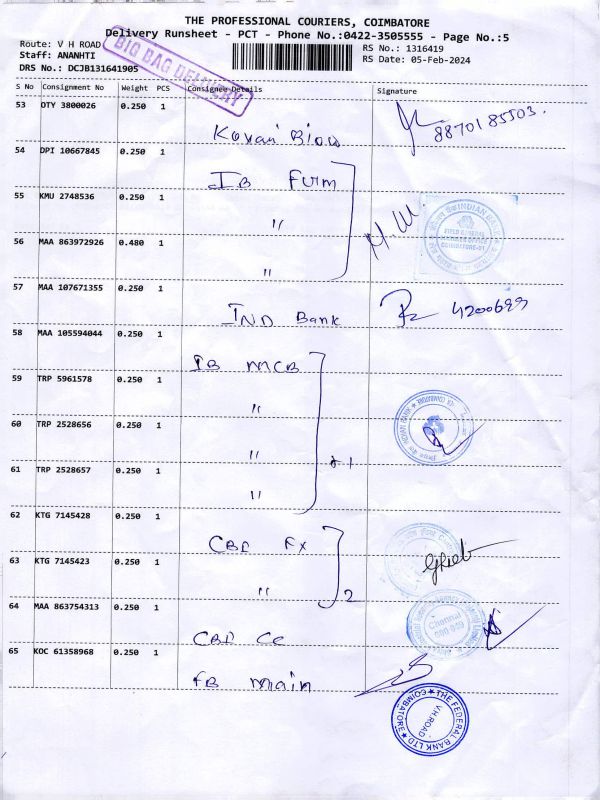 THE PROFESSIONAL COURIERS, COIMBATORE
Delivery Runsheet - PCT - Phone No.:0422-3505555 - Page No.:5
Route: V H ROAD
RS No.: 1316419
Staff: ANANHTI
RS Date: 05-Feb-2024
DRS No.: DCJB131641905
BIG BAG DELIVERY
S No Consignment No Weight PCS Consignee Details Signature
53 OTY 3800026 0.250 1
8870185503.
Kovai
54 DPI 10667845 0.250 1
IB
55 KMU 2748536 0.250 1
"
INDIAN BANK
COIMBATORE-01
56 MAA 863972926 0.480 1
"
57 MAA 107671355 0.250 1
IND Bank
4200699
58 MAA 105594044 0.250 1
IB MCB
59 TRP 5961578 0.250 1
"
60 TRP 2528656 0.250 1
"
INDIAN BANK
61 TRP 2528657 0.250 1
"
62 KTG 7145428 0.250 1
CBE FX
63 KTG 7145423 0.250 1
" 2
64 MAA 863754313 0.250 1
CBE CC
Chennai
600 049
65 KOC 61358968 0.250 1
FB main
THE FEDERAL BANK LTD.
V.H.ROAD
COIMBATORE